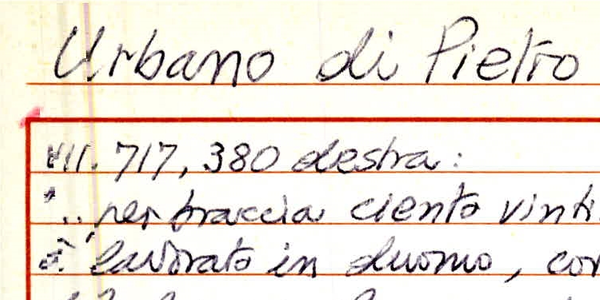 Urbano di Pietro
VII. 717, 380 destra:
"... per braccia ciento vinti
lavorato in duomo, con